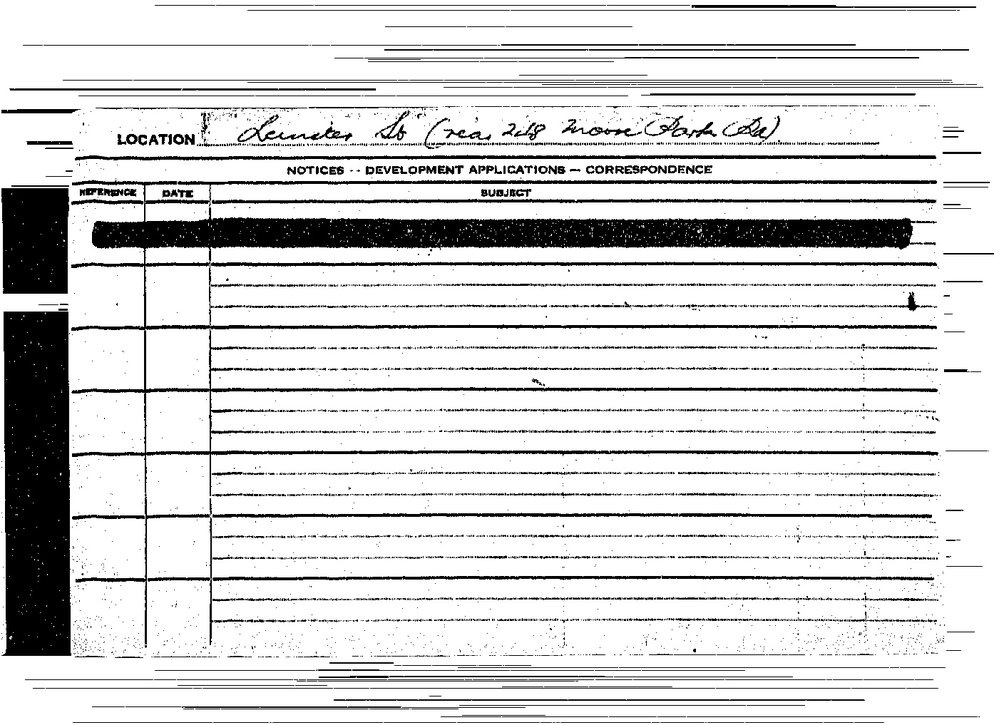 LOCATION Leinster St (rear 248 Moore Park Rd)
NOTICES -- DEVELOPMENT APPLICATIONS — CORRESPONDENCE
REFERENCE DATE SUBJECT